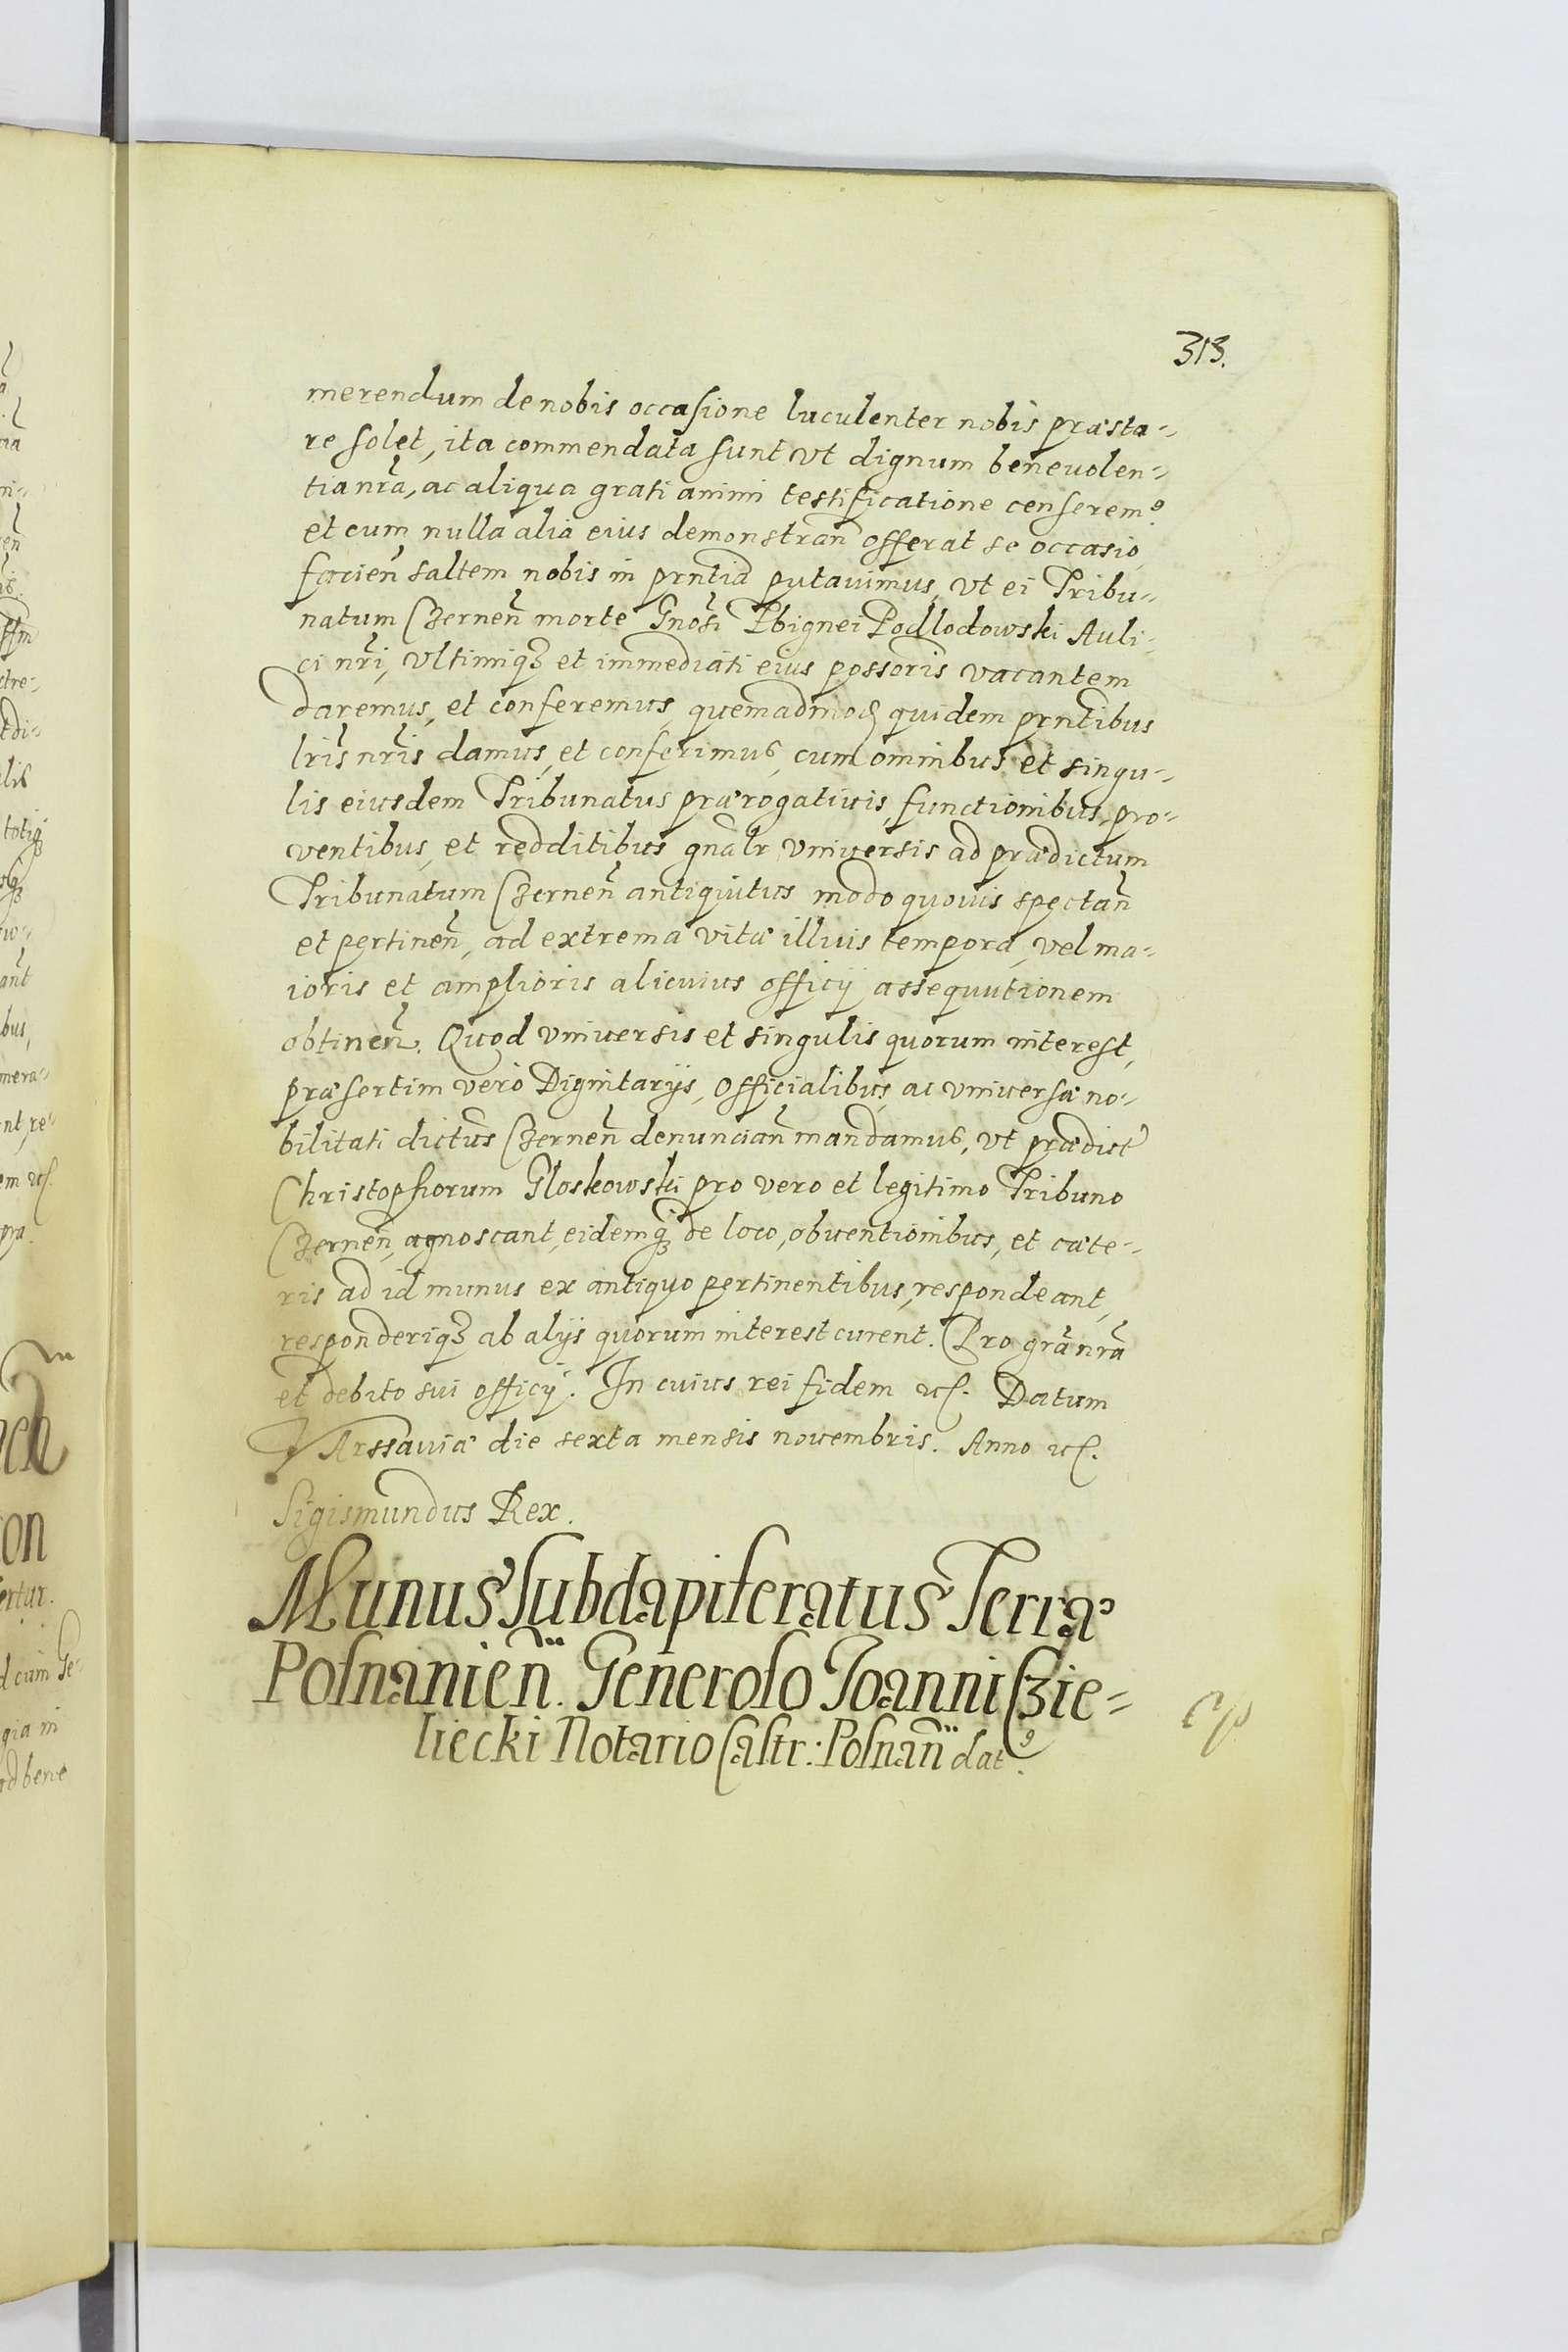 313.
merendum de nobis occasione luculenter nobis præsta-
re solet, ita commendata sunt vt dignum beneuolen-
tia nrã, ac aliqua grati animi testificatione censerem9
et cum nulla alia eius demonstrañ offerat se occasio,
facieñ saltem nobis in prñtia putauimus, vt ei Tribu-
natum Czerneñ morte Gnosi Zbignei Podlodowski Auli-
ci nr̃i, vltimiqz et immediati eius possoris vacantem
daremus, et conferemus, quemadmod quidem prñtibus
lris nris damus, et conferimus, cum omnibus et singu-
lis eiusdem Tribunatus prærogatiuis, functionibus, pro-
ventibus, et redditibus gnalr vniuersis ad prædictum
Tribunatum Czerneñ antiquitus modo quouis spectañ
et pertineñ, ad extrema vitæ illius tempora, vel ma-
ioris et amplioris alicuius officij assequutionem
obtineñ. Quod vniuersis et singulis quorum interest,
præsertim vero Dignitarijs, Officialibus, ac vniuersæ no-
bilitati dictus Czerneñ denunciañ mandamus, vt prædict
Christophorum Gloskowski pro vero et legitimo Tribuno
Czerneñ, agnoscant, eidemqz de loco, obuentionibus, et cæte-
ris ad id munus ex antiquo pertinentibus, respondeant,
responderiqz ab alijs quorum interest curent. Pro grã nrã
et debito sui officij. In cuius rei fidem etc. Datum
VArssauiæ die sexta mensis nouembris. Anno etc.
Sigismundus Rex.
Munus Subdapiferatus Terræ
Posnanieñ. Generoso Joanni Czie-
liecki Notario Castr: Posnañ dat9.